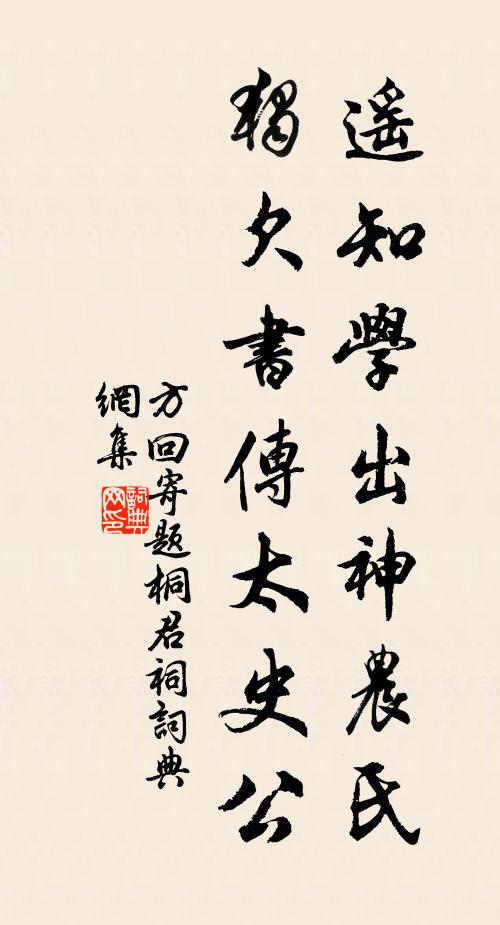 遥知學出神農氏
獨欠書傳太史公
方回寄題桐君祠詞典
網集
詞典網印